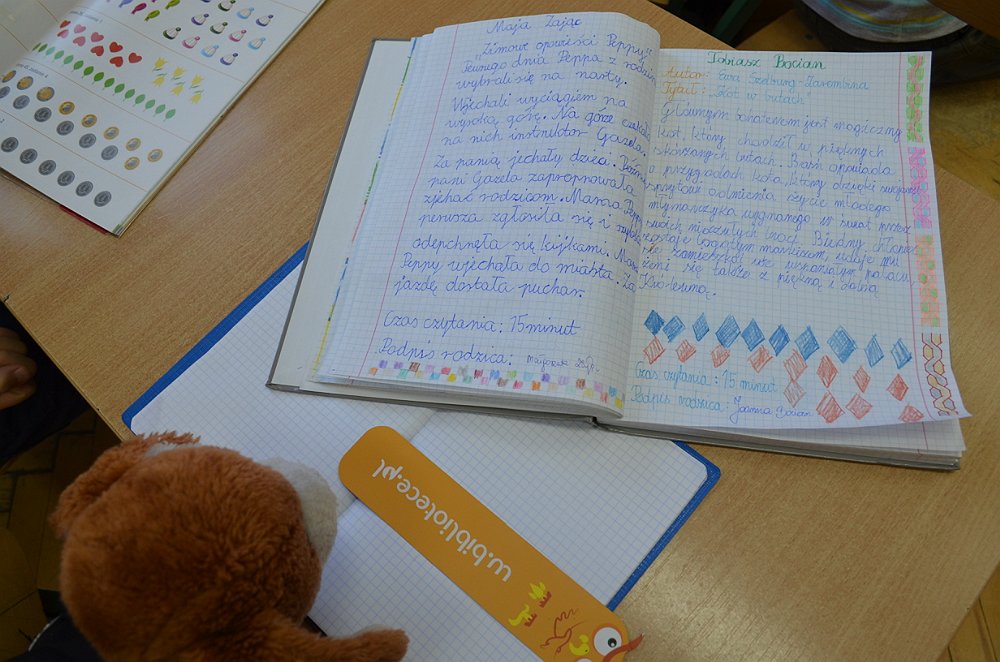 Maja Zając
"Zimowe opowieści Peppy"
Pewnego dnia Peppa z rodziną
wybrali się na narty.
Wjechali wyciągiem na
wysoką górę. Na górze czekała
na nich instruktor Gazela.
Za panią jechały dzieci. Później
pani Gazela zaproponowała
zjechać rodzicom. Mama Peppy
pierwsza zgłosiła się i szybko
odepchnęła się kijkami. Mama
Peppy wjechała do miasta. Za
jazdę dostała puchar.
Czas czytania: 15 minut
Podpis rodzica:
Tobiasz Bocian
Autor: Ewa Szelburg-Zarembina
Tytuł: „Kot w butach"
głównym bohaterem jest magiczny
kot, który chodził w pięknych
skórzanych butach. Baśń opowiada
o przygodach kota, który dzięki swojemu
sprytowi odmienia życie młodego
młynarczyka wygnanego w świat przez
swoich nieczułych braci. Biedny chłopiec
zostaje bogatym markizem, udaje mu
się zamieszkać we wspaniałym pałacu,
żeni się także z piękną i dobrą
Królewną.
Czas czytania: 15 minut
Podpis rodzica: Joanna Bocian
w.bibliotece.pl